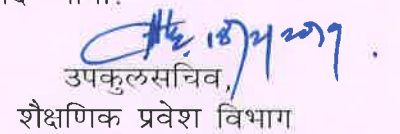 18/2/2019.
उपकुलसचिव,
शैक्षणिक प्रवेश विभाग